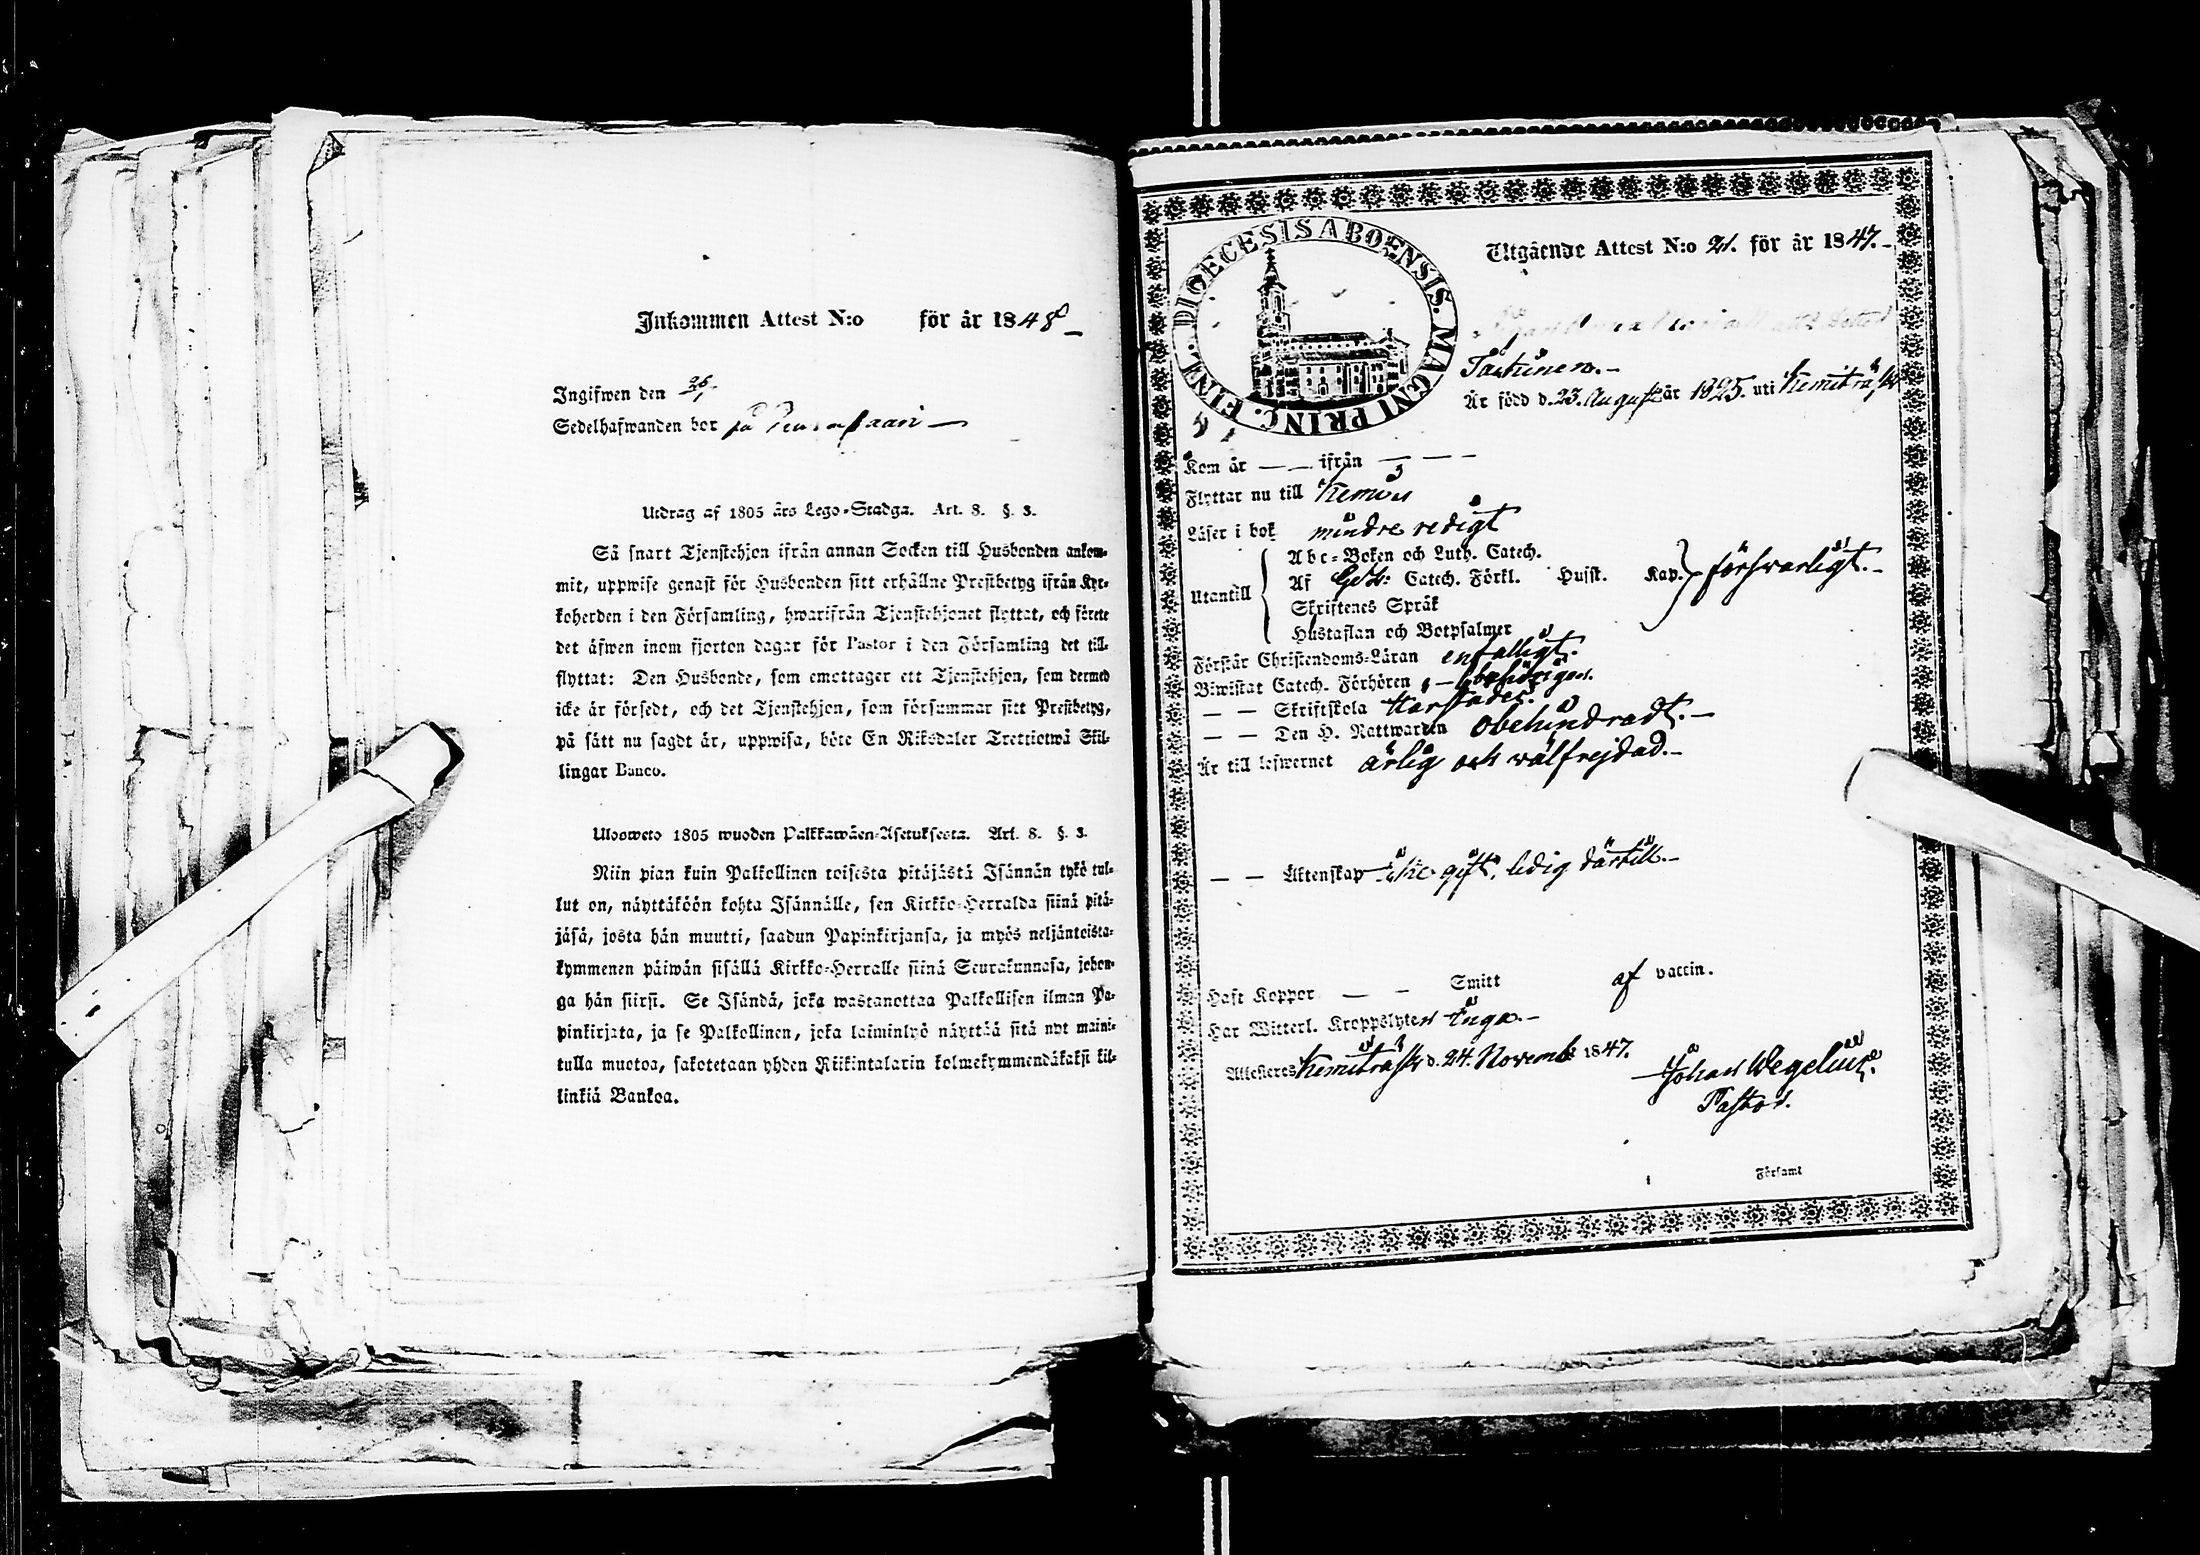 Inkommen Attest N:o för år 1848
Ingifwen den 25/1
Sedelhafwanden bor på
Utdrag af 1805 års Lego-Stadga. Art. 8. §. 3.
Så snart Tjenstehjon ifrån annan Socken till Husbonden ankom-
mit, uppwise genast för Husbonden sitt erhållne Prestbetyg ifrån Kyr-
koherden i den Församling, hwarifrån Tjenstehjonet flyttat, och förete
det äfwen inom fjorton dagar för Pastor i den Församling det till-
flyttat: Den Husbonde, som emottager ett Tjenstehjon, som dermed
icke är försedt, och det Tjenstehjon, som försummar sitt Prestbetyg,
på sätt nu sagdt är, uppwisa, böte En Riksdaler Trettiotwå Skil-
lingar Banco.
Ulosweto 1805 wuoden Palkkawäen-Asetuksesta. Art. 8. §. 3.
Niin pian kuin Palkollinen toisesta pitäjästä Isännän tykö tul-
lut on, näyttäköön kohta Isännälle, sen Kirkko-Herralda siinä pitä-
jäsä, josta hän muutti, saadun Papinkirjansa, ja myös neljäntoista-
kymmenen päiwän sisällä Kirkko-Herralle siinä Seurakunnasa, johon-
ga hän siirsi. Se Isändä, joka wastanottaa Palkollisen ilman Pa-
pinkirjata, ja se Palkollinen, joka laiminlyö näyttää sitä nyt maini-
tulla muotoa, sakotetaan yhden Riikintalarin kolmekymmendäkaksi kil-
linkiä Bankoa.
DIOECESIS ABOENSIS. MAGNI PRINC. FINL.
Utgående Attest N:o 21. för år 1847.
Är född d. 23. August år 1825. uti Kemiträsk
Kom år — — ifrån — — —
Flyttar nu till Kemi
Läser i bok mindre redigt
Utantill
Abc-Boken och Luth. Catech.
Af Catech. Förkl. Husst. Kap. försvarligt.
Skriftenes Språk
Hustaflan och Botpsalmer
Förstår Christendoms-Läran enfalligt.
Biwistat Catech. Förhören
— — Skriftskola
— — Den H. Nattwarden obehindradt.
Är till lefwernet ärlig och wälfrejdad.
— — Äktenskap icke gift, ledig därtill.
Haft Koppor — — Smitt af vaccin.
Har Witterl. Kroppslyten Inga.
Attesteres Kemiträsk d. 24. Novemb 1847.
Johan Wegelius.
Pastor.
Församl